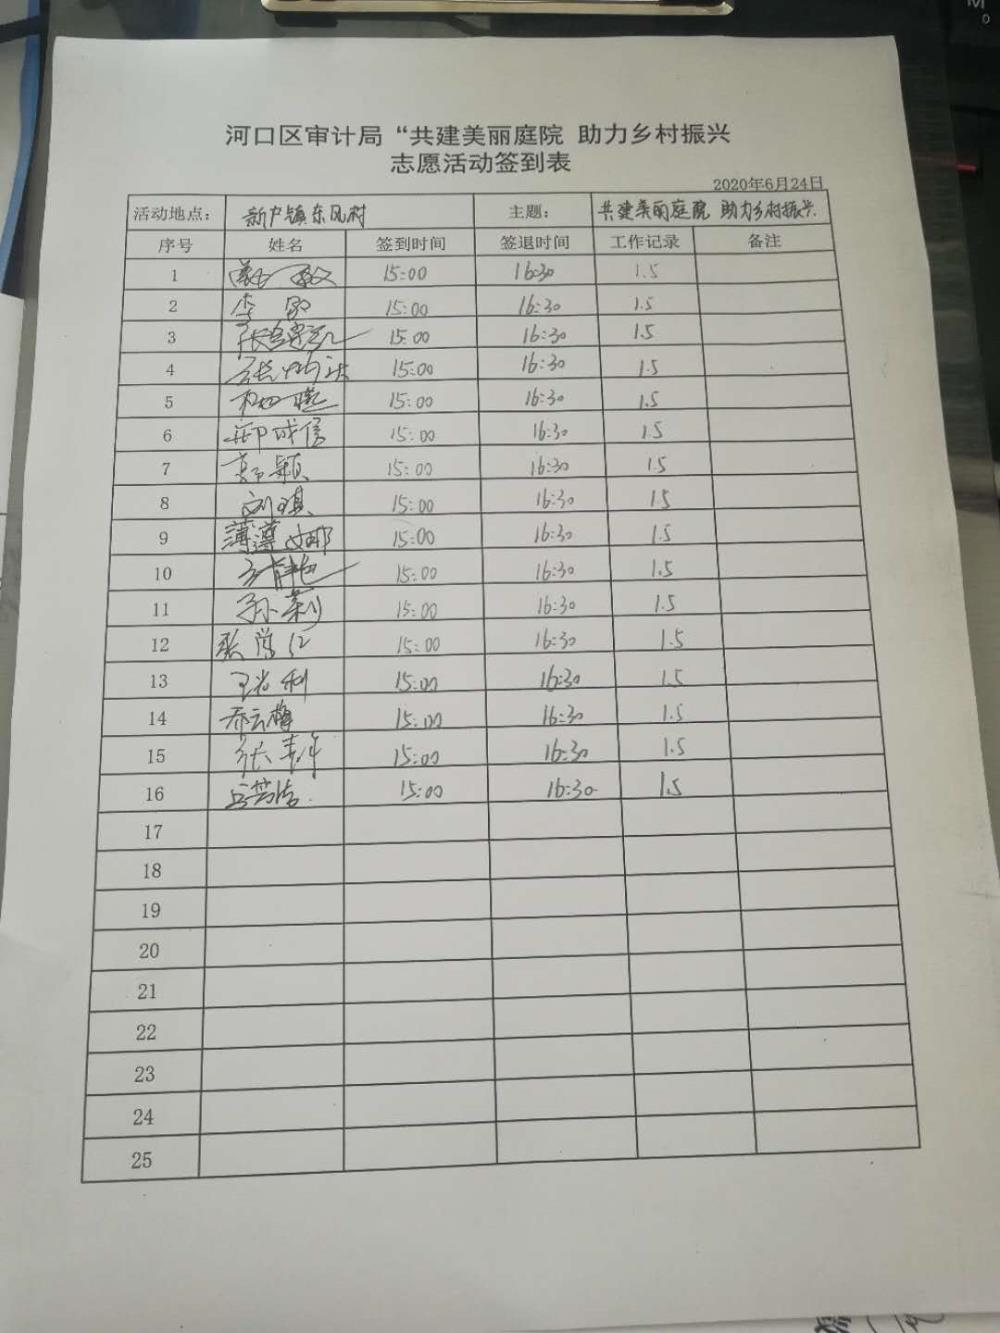 河口区审计局“共建美丽庭院 助力乡村振兴
志愿活动签到表
2020年6月24日
活动地点: 新户镇东风村 主题: 共建美丽庭院 助力乡村振兴
序号 姓名 签到时间 签退时间 工作记录 备注
1 15:00 16:30 1.5
2 李 15:00 16:30 1.5
3 张 15:00 16:30 1.5
4 张 15:00 16:30 1.5
5 15:00 16:30 1.5
6 邢成信 15:00 16:30 1.5
7 郭颖 15:00 16:30 1.5
8 刘琪 15:00 16:30 1.5
9 薄遵娜 15:00 16:30 1.5
10 15:00 16:30 1.5
11 孙莉 15:00 16:30 1.5
12 张 15:00 16:30 1.5
13 王 利 15:00 16:30 1.5
14 乔云梅 15:00 16:30 1.5
15 张 15:00 16:30 1.5
16 15:00 16:30 1.5
17
18
19
20
21
22
23
24
25